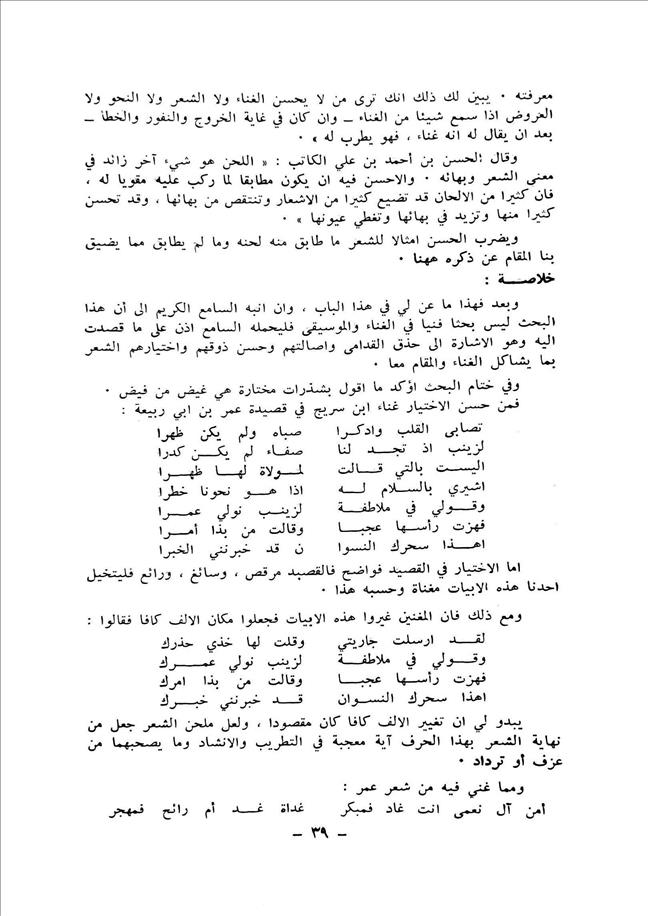 معرفته ٠ يبين لك ذلك انك ترى من لا يحسن الغناء ولا الشعر ولا النحو ولا
العروض اذا سمع شيئا من الغناء ــ وان كان في غاية الخروج والنفور والخطأ ــ
بعد ان يقال له انه غناء ، فهو يطرب له » ٠
وقال الحسن بن أحمد بن علي الكاتب : « اللحن هو شيء آخر زائد في
معنى الشعر وبهائه ٠ والاحسن فيه ان يكون مطابقا لما ركب عليه مقويا له ،
فان كثيرا من الالحان قد تضيع كثيرا من الاشعار وتنتقص من بهائها ، وقد تحسن
كثيرا منها وتزيد في بهائها وتغطي عيونها » ٠
ويضرب الحسن امثالا للشعر ما طابق منه لحنه وما لم يطابق مما يضيق
بنا المقام عن ذكره ههنا ٠
خلاصــة :
وبعد فهذا ما عن لي في هذا الباب ، وان انبه السامع الكريم الى أن هذا
البحث ليس بحثا فنيا في الغناء والموسيقى فليحمله السامع اذن على ما قصدت
اليه وهو الاشارة الى حذق القدامى واصالتهم وحسن ذوقهم واختيارهم الشعر
بما يشاكل الغناء والمقام معا ٠
وفي ختام البحث اؤكد ما اقول بشذرات مختارة هي غيض من فيض ٠
فمن حسن الاختيار غناء ابن سريج في قصيدة عمر بن ابي ربيعة :
تصابى القلب وادكــرا صباه ولم يكن ظهرا
لزينب اذ تجــد لنا صفــاء لم يكــن كدرا
اليست بالتي قــالت لمــولاة لهــا ظهــرا
اشيري بالســلام لــه اذا هــو نحونا خطرا
وقــولي في ملاطفــة لزينــب نولي عمــرا
فهزت رأســها عجبــا وقالت من بذا أمــرا
اهــذا سحرك النسوا ن قد خبرنني الخبرا
اما الاختيار في القصيد فواضح فالقصيد مرقص ، وسائغ ، ورائع فليتخيل
احدنا هذه الابيات مغناة وحسبه هذا ٠
ومع ذلك فان المغنين غيروا هذه الابيات فجعلوا مكان الالف كافا فقالوا :
لقــد ارسلت جاريتي وقلت لها خذي حذرك
وقــولي في ملاطفــة لزينب نولي عمــرك
فهزت رأســها عجبــا وقالت من بذا امرك
اهذا سحرك النسوان قــد خبرنني خبــرك
يبدو لي ان تغيير الالف كافا كان مقصودا ، ولعل ملحن الشعر جعل من
نهاية الشعر بهذا الحرف آية معجبة في التطريب والانشاد وما يصحبهما من
عزف أو ترداد ٠
ومما غني فيه من شعر عمر :
أمن آل نعمى انت غاد فمبكر غداة غــد أم رائح فمهجر
ــ ٣٩ ــ